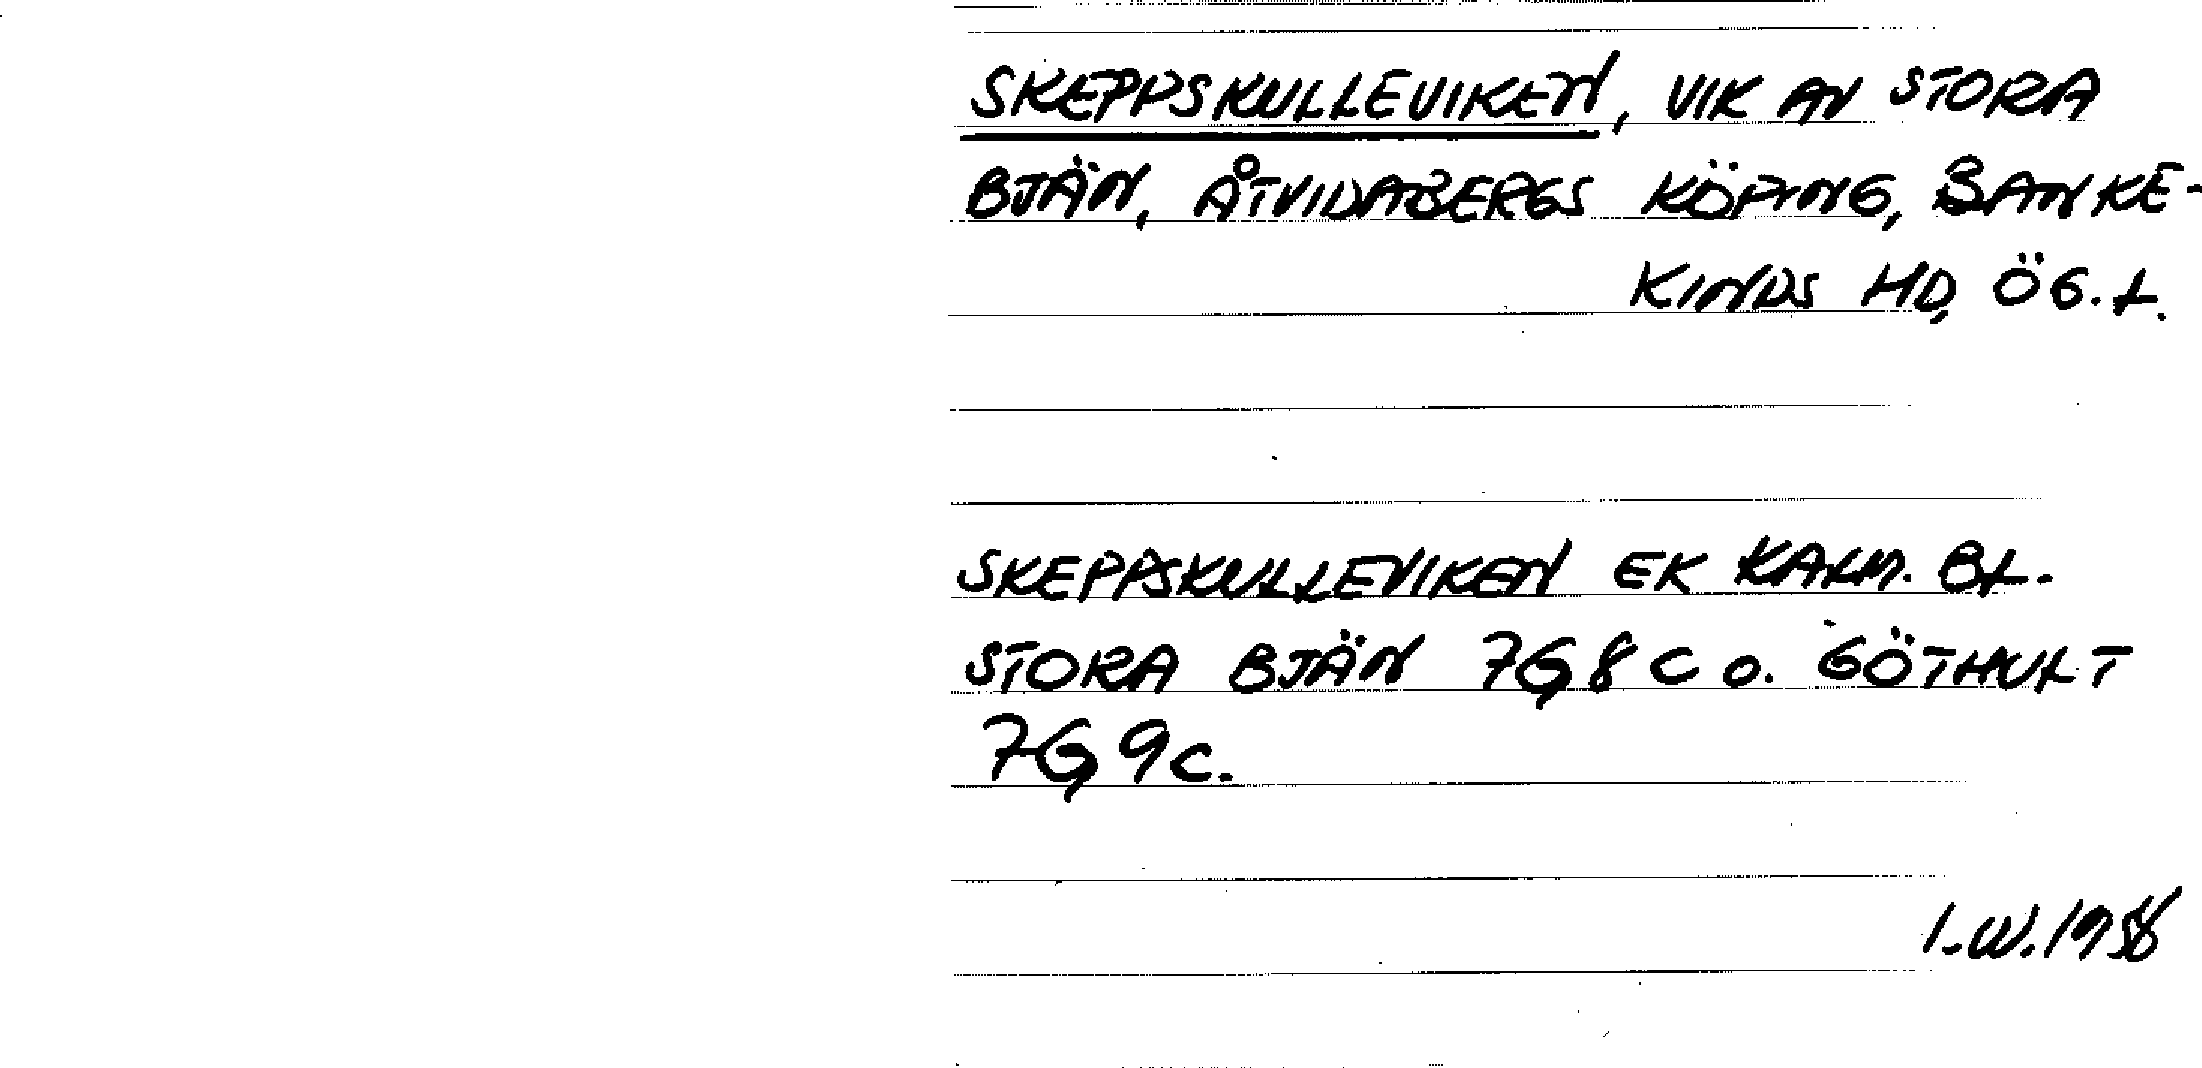 SKEPPSKULLEVIKEN, VIK AV STORA
BJÄN, ÅTVIDABERGS KÖPING, BANKE-
KINDS HD, ÖG. L.
SKEPPSKULLEVIKEN EK KALM. BL.
STORA BJÄN 7G 8 C O. GÖTHULT
7G 9C.
I.W.